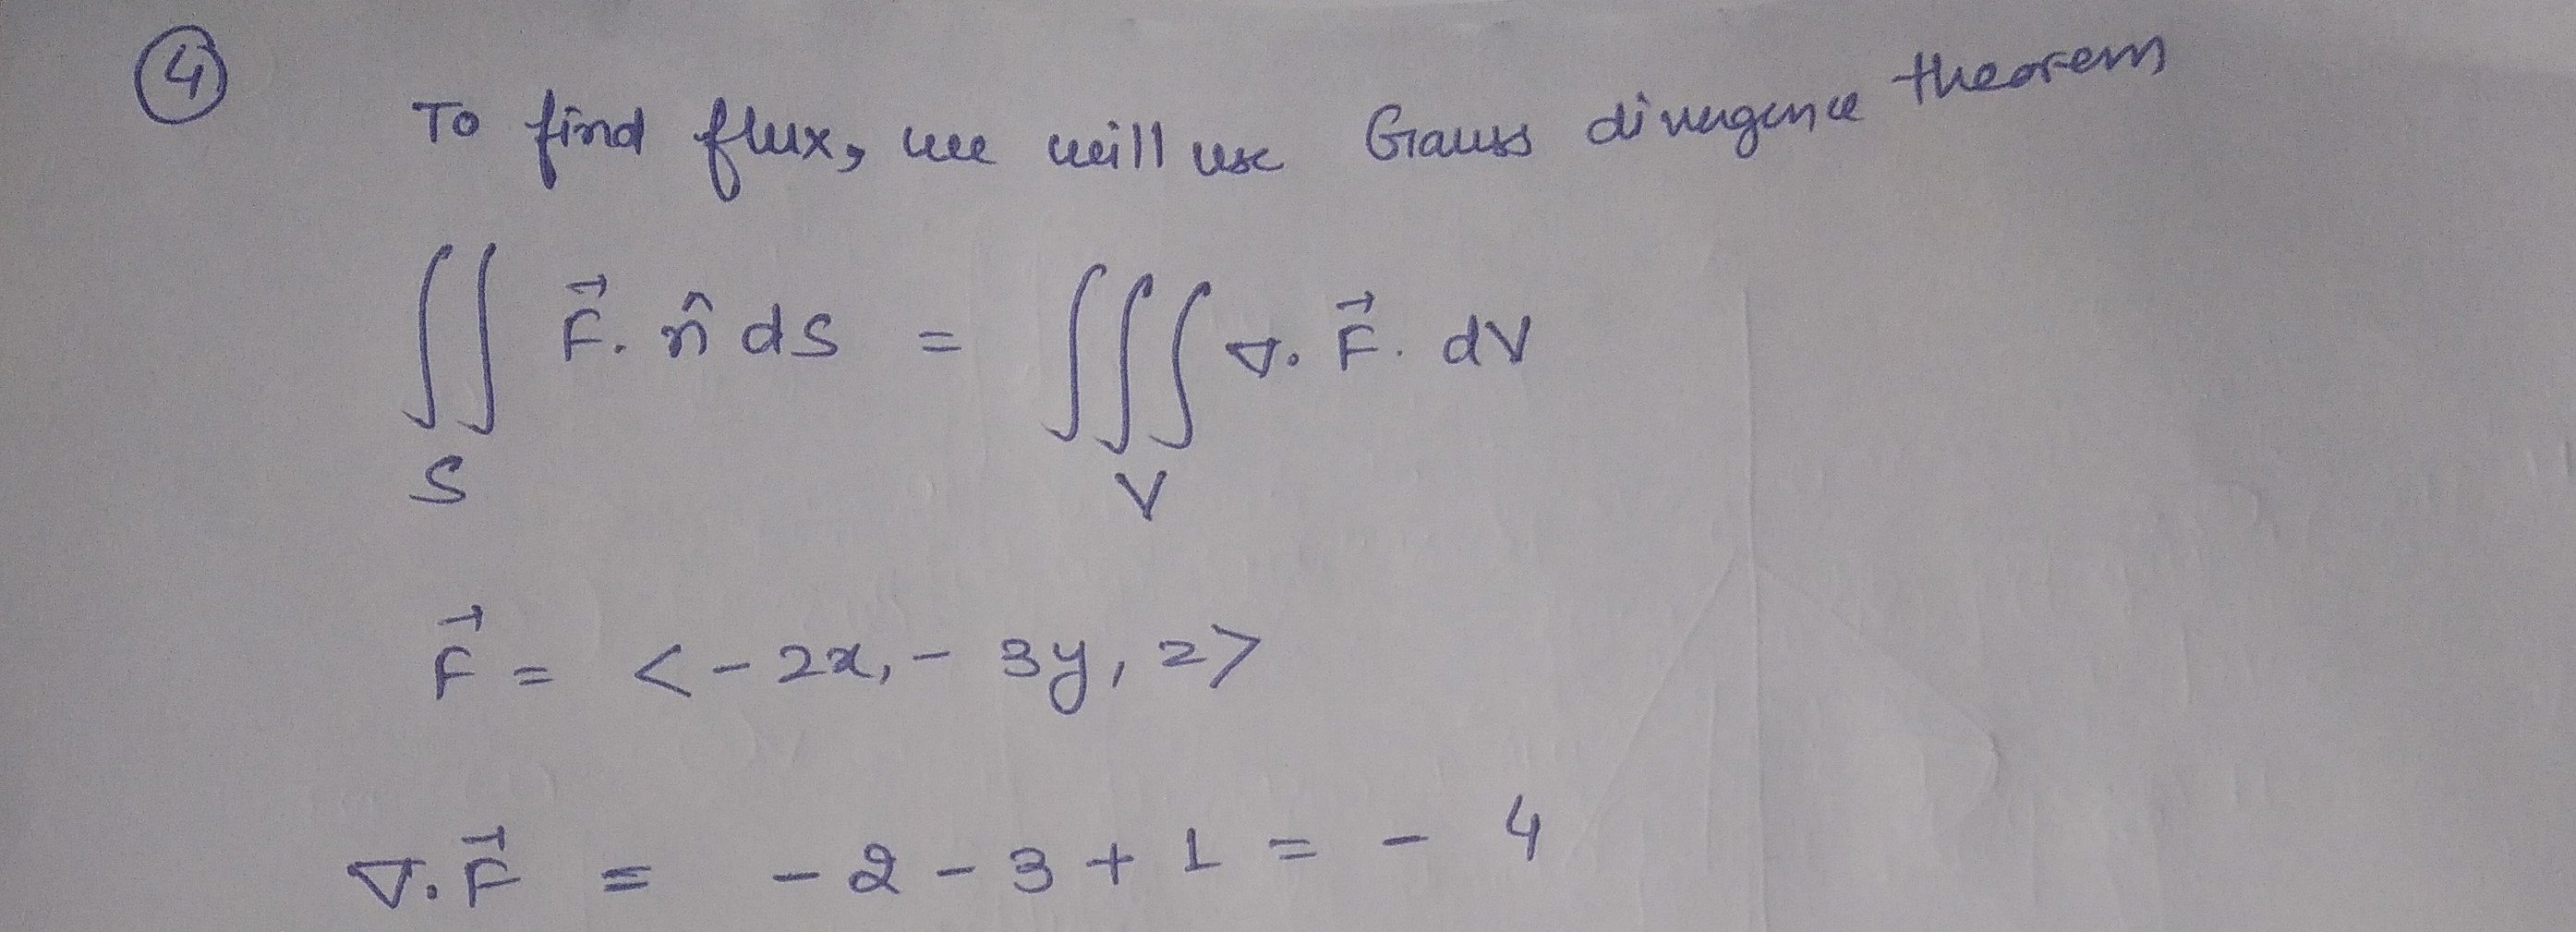 ④
To find flux, we will use Gauss divergence theorem
∬ F⃗. n̂ ds = ∭ ∇. F⃗. dV
S V
F⃗ = <-2x, - 3y, z>
∇. F⃗ = - 2 - 3 + 1 = - 4